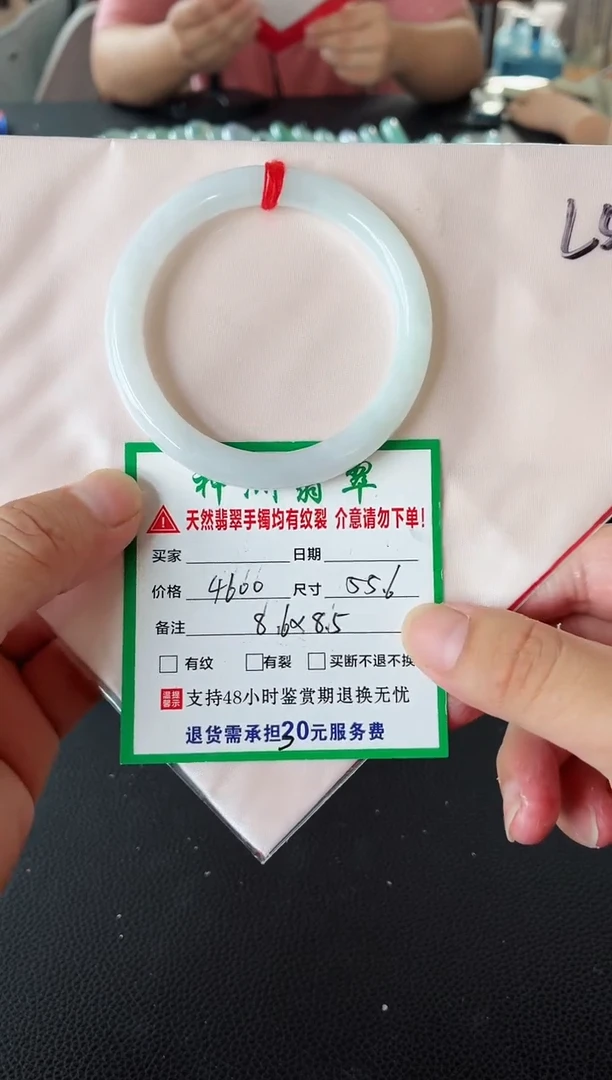 L5
神洲翡翠
天然翡翠手镯均有纹裂 介意请勿下单!
买家 日期
价格 4600 尺寸 55.6
备注 8.6×8.5
有纹 有裂 买断不退不换
温馨提示 支持48小时鉴赏期退换无忧
退货需承担30元服务费